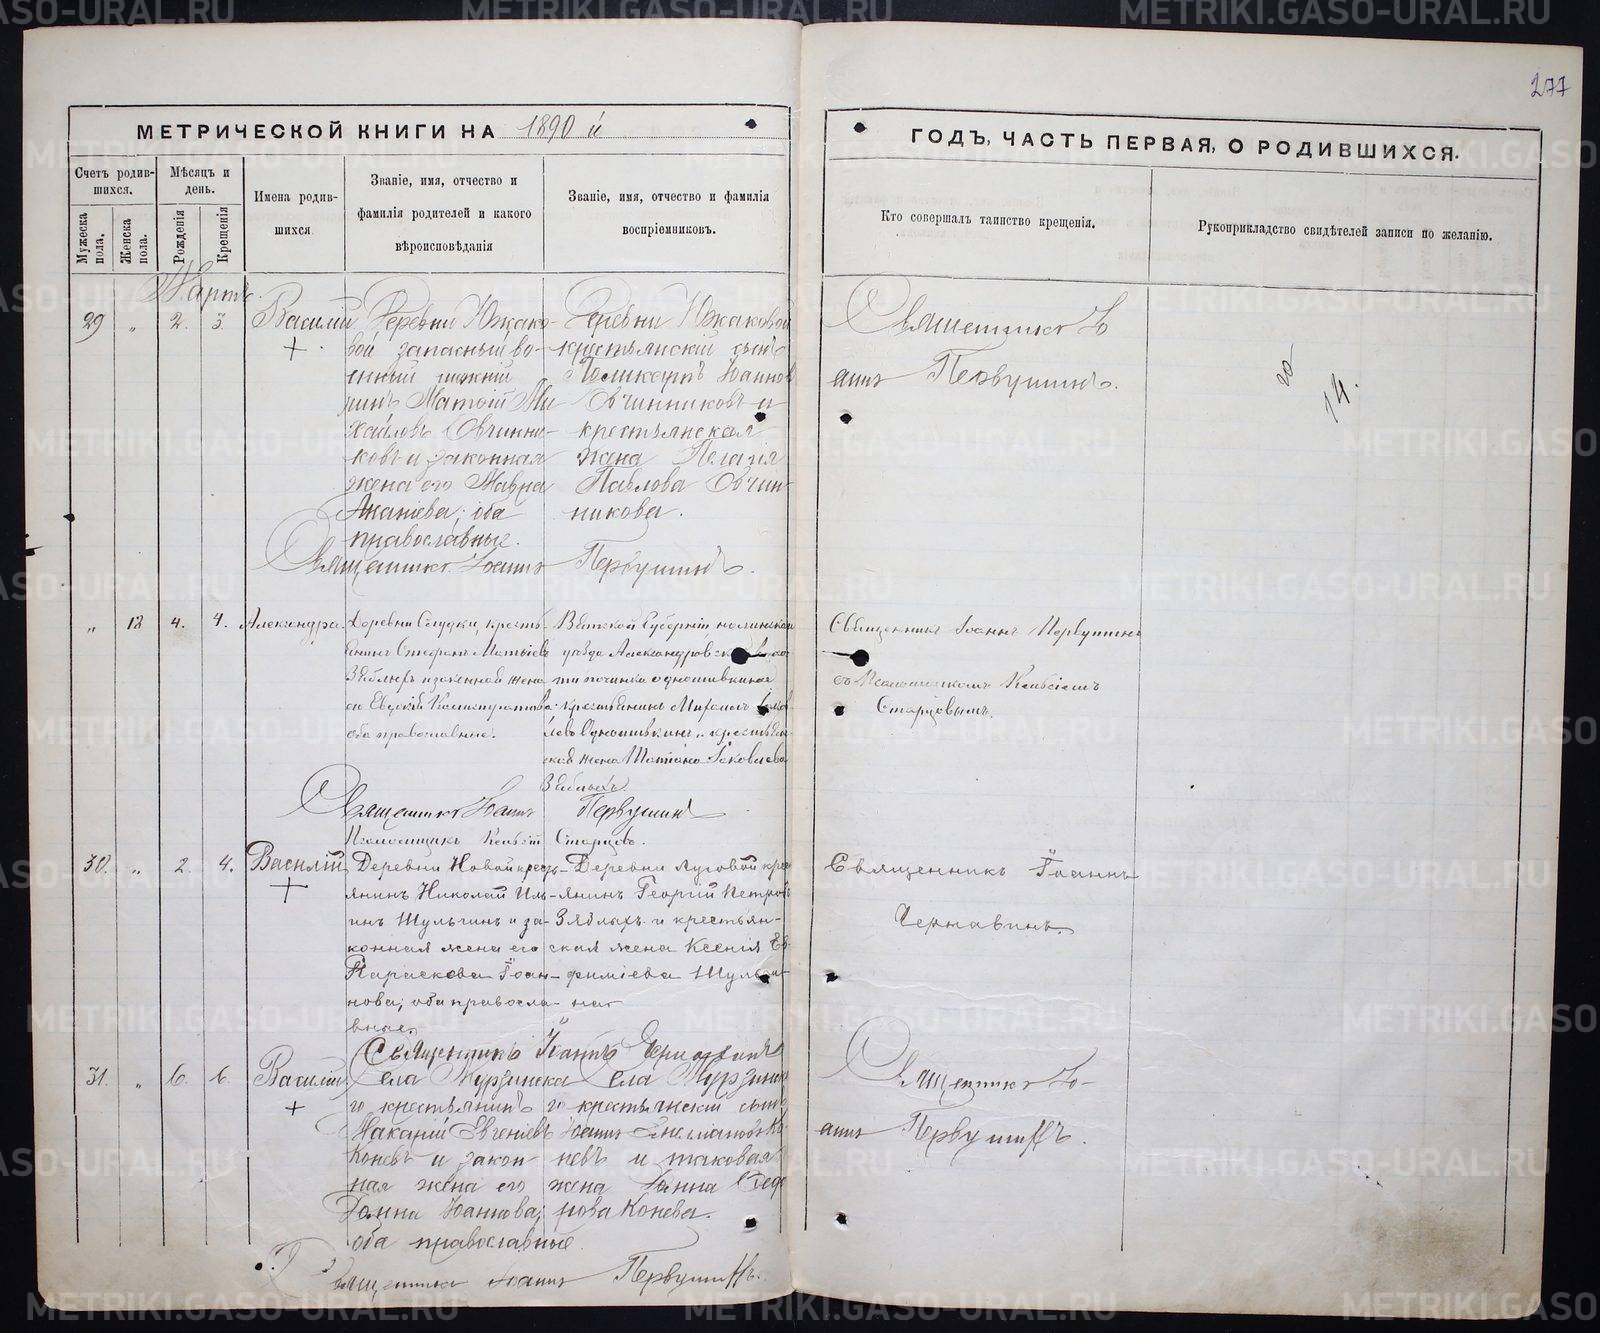 277
МЕТРИЧЕСКОЙ КНИГИ НА 1890 й
ГОДЪ, ЧАСТЬ ПЕРВАЯ, О РОДИВШИХСЯ.
Счетъ родив-
шихся.
Мужеска
пола.
Женска
пола.
Мѣсяцъ и
день.
Рожденія
Крещенія
Имена родив-
шихся
Званіе, имя, отчество и
фамилія родителей и какого
вѣроисповѣданія
Званіе, имя, отчество и фамилія
воспріемниковъ.
Кто совершалъ таинство крещенія.
Рукоприкладство свидѣтелей записи по желанію.
Мартъ.
29 „ 2. 3. Василій
Деревни Южако-
вой запасный во-
енный
Матөій Ми
хайловъ Овчинни-
ковъ и законная
жена его Мавра
Ананіева; оба
православные.
Деревни Южаковой
крестьянскій сынъ
Поликарпъ Іоаннов
Овчинниковъ и
крестьянская
жена Пелагія
Павлова Овчин
никова.
Священникъ Іоаннъ Первушинъ.
Священникъ Іо
аннъ Первушинъ.
14.
„ 18 4. 4. Александра.
Деревни Слудки, кресть-
янинъ Стефанъ Матвіевъ
и законная жена
его Евдокія
оба православные.
Вятской Губерніи
уѣзда Александровской
починка
крестьянинъ
крестьян
ская жена Татіана Іаковлева
Зяблыхъ
Священникъ Іоаннъ Первушинъ
Псаломщикъ Старцовъ.
Священникъ Іоаннъ Первушинъ
съ Псаломщикомъ
Старцовымъ.
30. „ 2. 4. Василій
Деревни Новой крест-
янинъ Николай Иль-
инъ Шульгинъ и за-
конная жена его
Параскева Іоан-
нова; оба правосла-
вные.
Деревни Луговой крес
янинъ Георгій Петров
Зяблыхъ и крестьян-
ская жена Ксенія Ев
фиміева Шульги-
на
Священникъ Іоаннъ
Священникъ Іоаннъ
Чернавинъ.
31. „ 6. 6. Василій
Села Мурзинска
го крестьянинъ
Макарій Евгеніевъ
Коневъ и закон
ная жена его
Іоанна Іоаннова;
оба православные
Села Мурзинска
го крестьянскій сынъ
Іоаннъ Ко
невъ и таковая
жена Іанна Ѳеодо
рова Конева.
Священникъ Іоаннъ Первушинъ.
Священникъ Іо-
аннъ Первушинъ.
METRIKI.GASO-URAL.RU